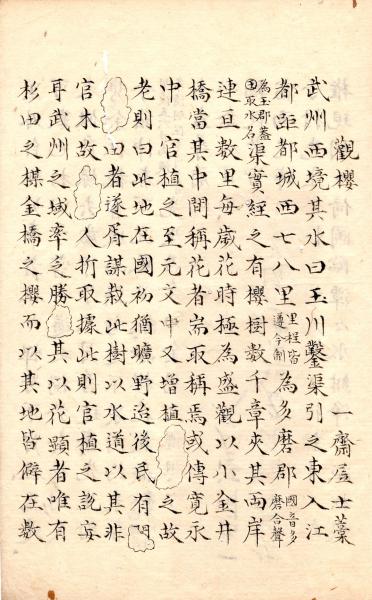 觀櫻 一齋居士藁
武州西境其水曰玉川鑿渠引之東入江
都距都城西七八里里程皆遵今制為多磨郡國音多磨合聲
為玉郡蓋因取水名渠實經之有櫻樹數千章夾其兩岸
連亘數里每歲花時極為盛觀以小金井
橋當其中間稱花者耑取稱焉或傳寬永
中 官植之至元文中又增植之故
老則曰此地在國初猶曠野迨後民有
田者遂胥謀栽此樹以水道以其非
官木故人折取據此則官植之說妄
耳武州之域率乏勝其以花顯者唯有
杉田之楳金橋之櫻而以其地皆僻在數